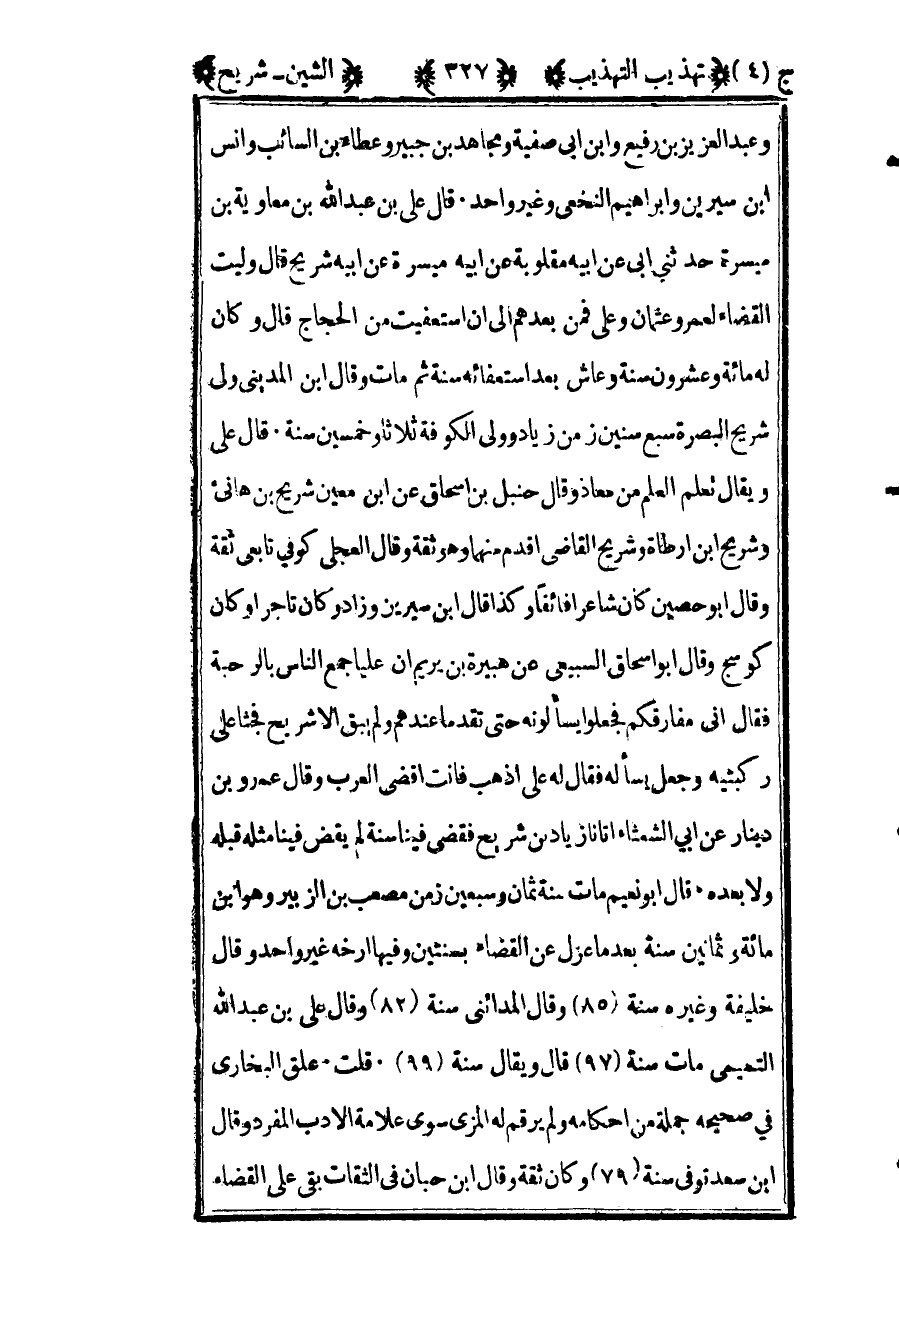 ج (٤) ﴿تهذيب التهذيب﴾ ﴿٣٢٧﴾ ﴿الشين - شريح﴾
وعبدالعزيز بن رفيع وابن ابى صفية ومجاهد بن جبير وعطاء بن السائب وانس
ابن سيرين وابراهيم النخعى وغير واحد · قال على بن عبدالله بن معاوية بن
ميسرة حدثني ابى عن ابيه مقلوبة عن ابيه ميسرة عن ابيه شريح قال وليت
القضاء لعمر وعثمان وعلى فمن بعدهم الى ان استعفيت من الحجاج قال وكان
له مائة وعشرون سنة وعاش بعد استعفائه سنة ثم مات وقال ابن المدينى ولى
شريح البصرة سبع سنين زمن زياد وولى الكوفة ثلاثا وخمسين سنة · قال على
ويقال تعلم العلم من معاذ وقال حنبل بن اسحاق عن ابن معين شريح بن هانئ
وشريح ابن ارطاة وشريح القاضى اقدم منهما وهو ثقة وقال العجلى كوفي تابعى ثقة
وقال ابو حصين كان شاعرا فائفاً وكذا قال ابن سيرين وزاد وكان تاجرا وكان
كوسج وقال ابو اسحاق السبيعى عن هبيرة بن يريم ان عليا جمع الناس بالرحبة
فقال انى مفارقكم فجعلوا يسألونه حتى تقد ما عندهم ولم يبق الا شريح فجثا على
ركبتيه وجعل يسأله فقال له على اذهب فانت اقضى العرب وقال عمرو بن
دينار عن ابي الشعثاء اتانا زياد بن شريح فقضى فينا سنة لم يقض فينا مثله قبله
ولا بعده · قال ابو نعيم مات سنة ثمان وسبعين زمن مصعب بن الزبير وهو ابن
مائة وثمانين سنة بعد ما عزل عن القضاء بسنتين وفيها ارخه غير واحد وقال
خليفة وغيره سنة (٨٥) وقال المدائنى سنة (٨٢) وقال على بن عبدالله
التميمى مات سنة (٩٧) قال ويقال سنة (٩٩) · قلت · علق البخارى
في صحيحه جملة من احكامه ولم يرقم له المزى سوى علامة الادب المفرد وقال
ابن سعد توفى سنة (٧٩) وكان ثقة وقال ابن حبان فى الثقات بقى على القضاء